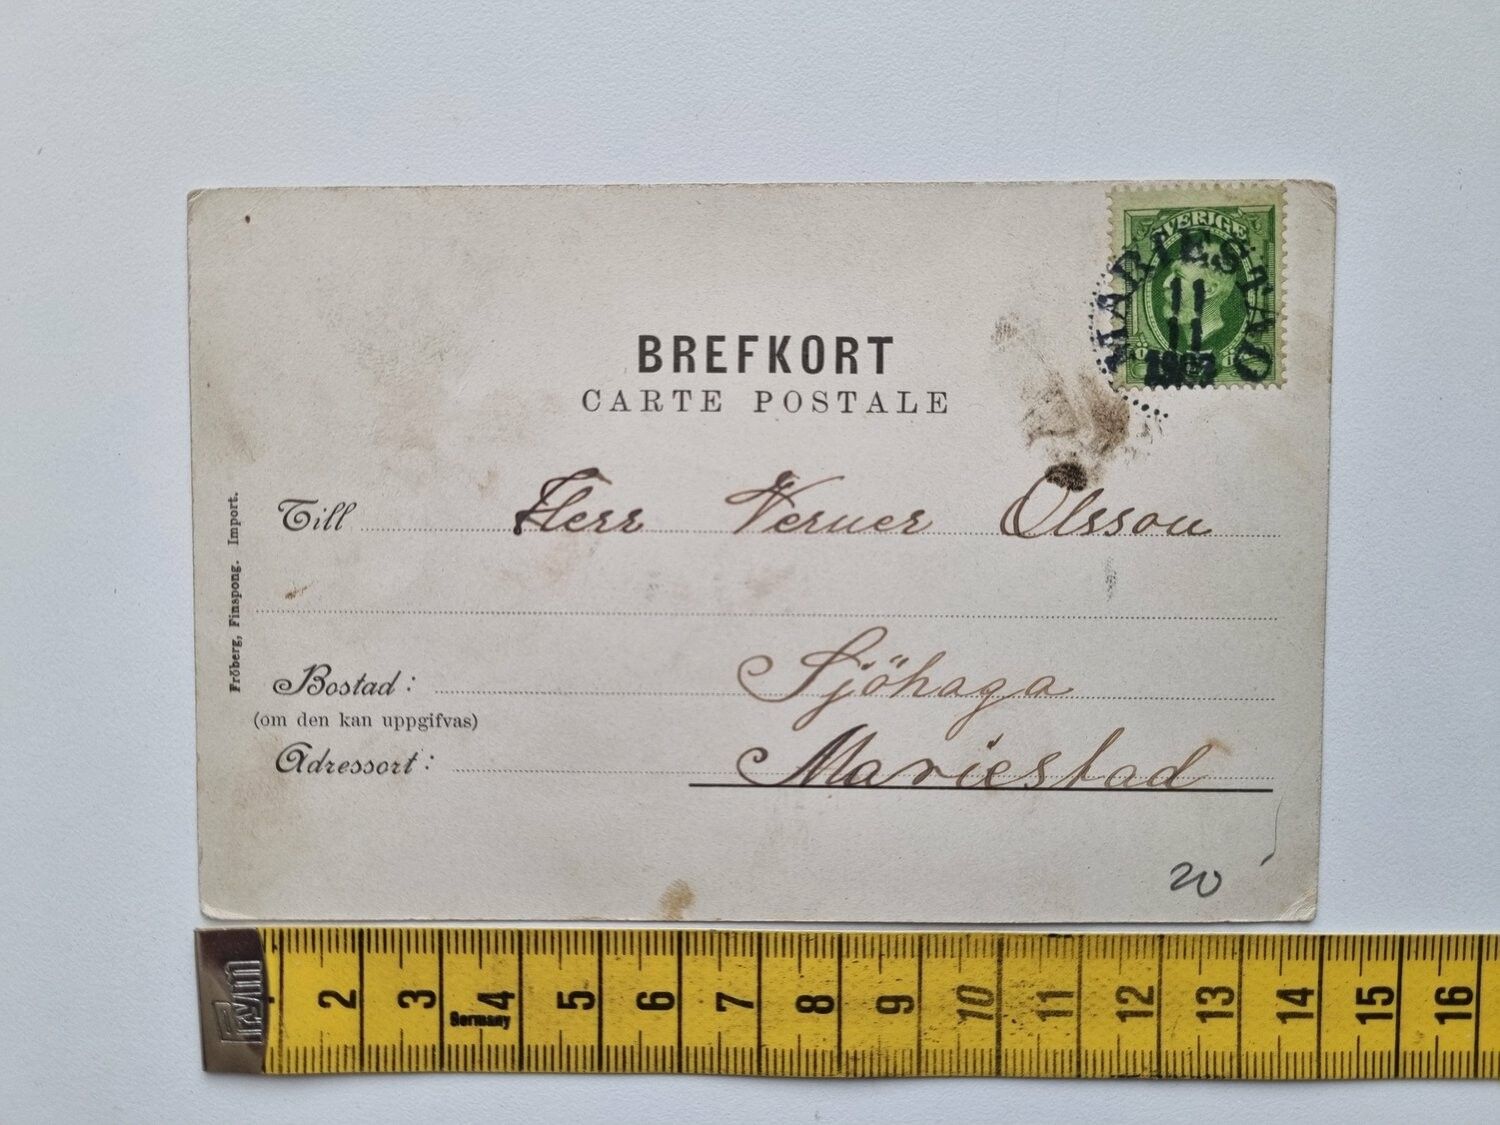 SVERIGE
MARIESTAD
11
11
BREFKORT
CARTE POSTALE
Till Herr Verner Olsson
Fröberg, Finspong. Import.
Bostad: Sjöhaga
(om den kan uppgifvas)
Adressort: Mariestad
20
Prym
2 3 4 5 6 7 8 9 10 11 12 13 14 15 16
Germany